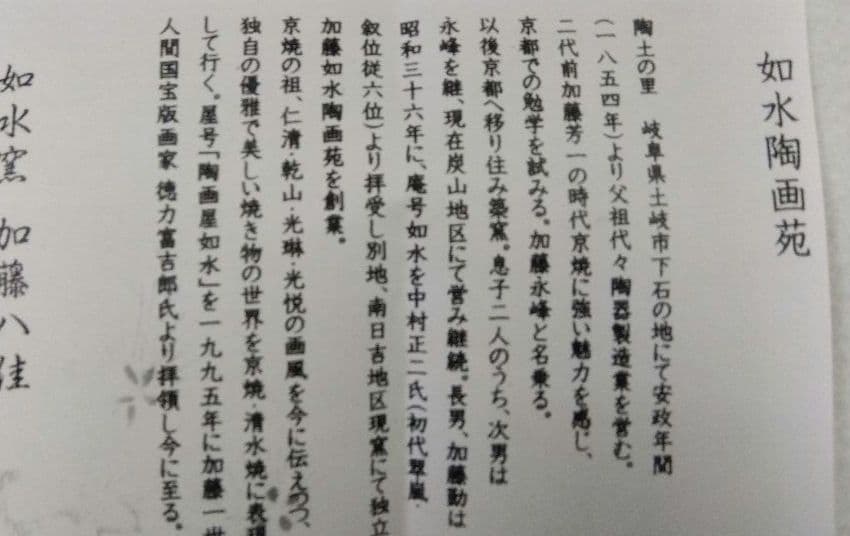 如水陶画苑
陶土の里　岐阜県土岐市下石の地にて安政年間
(一八五四年)より父祖代々陶器製造業を営む。
二代前加藤芳一の時代京焼に強い魅力を感じ、
京都での勉学を試みる。加藤永峰と名乗る。
以後京都へ移り住み築窯。息子二人のうち、次男は
永峰を継、現在炭山地区にて営み継続。長男、加藤勤は
昭和三十六年に、庵号如水を中村正二氏(初代翠嵐・
叙位従六位)より拝受し別地、南日吉地区現窯にて独立
加藤如水陶画苑を創業。
京焼の祖、仁清・乾山・光琳・光悦の画風を今に伝えつつ、
独自の優雅で美しい焼き物の世界を京焼・清水焼に表現
して行く。屋号「陶画屋如水」を一九九五年に加藤一世
人間国宝版画家 徳力富吉郎氏より拝領し今に至る。
如水窯 加藤八